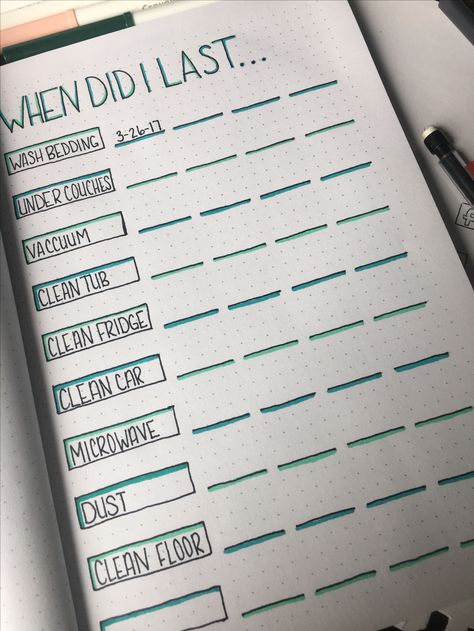 WHEN DID I LAST...
WASH BEDDING 3-26-17
UNDER COUCHES
VACCUUM
CLEAN TUB
CLEAN FRIDGE
CLEAN CAR
MICROWAVE
DUST
CLEAN FLOOR